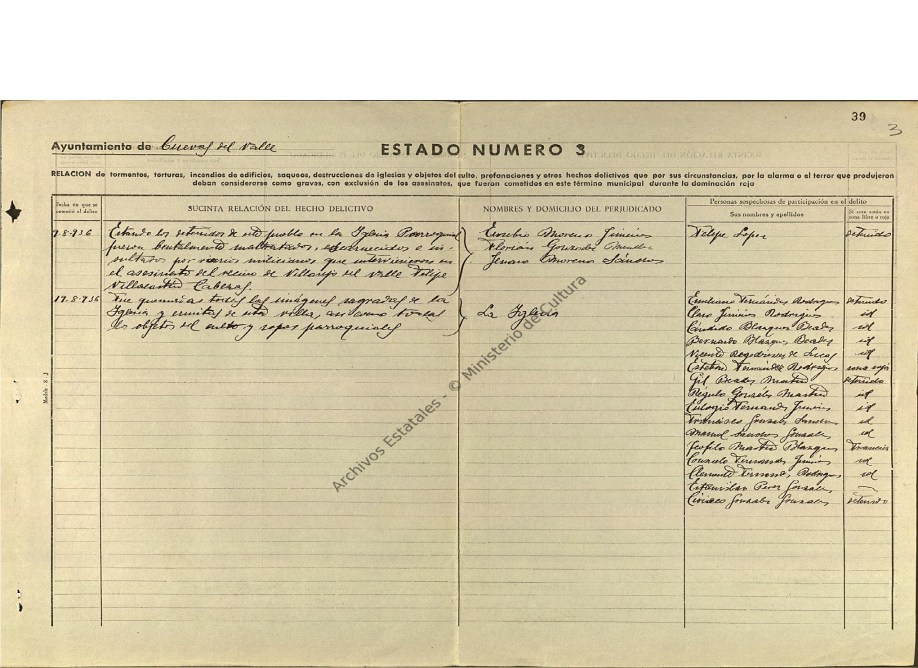 39
3
Ayuntamiento de Cuevas del Valle
ESTADO NUMERO 3
RELACION de tormentos, torturas, incendios de edificios, saqueos, destrucciones de iglesias y objetos del culto, profanaciones y otros hechos delictivos que por sus circunstancias, por la alarma o el terror que produjeron
deban considerarse como graves, con exclusión de los asesinatos, que fueron cometidos en este término municipal durante la dominación roja
Fecha en que se
cometió el delito
SUCINTA RELACIÓN DEL HECHO DELICTIVO
NOMBRES Y DOMICILIO DEL PERJUDICADO
Personas sospechosas de participación en el delito
Sus nombres y apellidos
Si está están en
zona libre o roja
7-8-936 Estando los detenidos de este pueblo en la Iglesia Parroquial
fueron brutalmente maltratados, escarnecidos e in-
sultados por varios milicianos que intervinieron en
el asesinato del vecino de Villarejo del Valle Felipe
Villacastín Cabezas.
Eusebio Moreno Jiménez
Florián González
Jenaro Moreno Sánchez
Felipe Lopez detenido
17-8-936 Fue quemarias todas las imágenes sagradas de la
Iglesia y ermitas de esta villa, asi como todas
los objetos del culto y ropas parroquiales
La Iglesia
Emiliano Fernández Rodriguez detenido
Claro Jiménez Rodriguez id
Candido Blazquez id
Bernardo Blázquez id
Vicente de Lucas id
Esteban Fernández Rodriguez zona roja
Gil Martin detenido
Régulo González Martin id
Eulogio Fernandez Jiménez id
Francisco Gonzalez Sanchez id
Manuel Sanchez Gonzalez id
Teofilo Martin Blazquez Francia
Consuelo Fernandez Jiménez id
Clemente Fernandez Rodriguez id
Estanislao Perez Gonzalez —
Ciriaco Gonzalez Gonzalez detenido
Modelo S. J.
Archivos Estatales - © Ministerio de Cultura